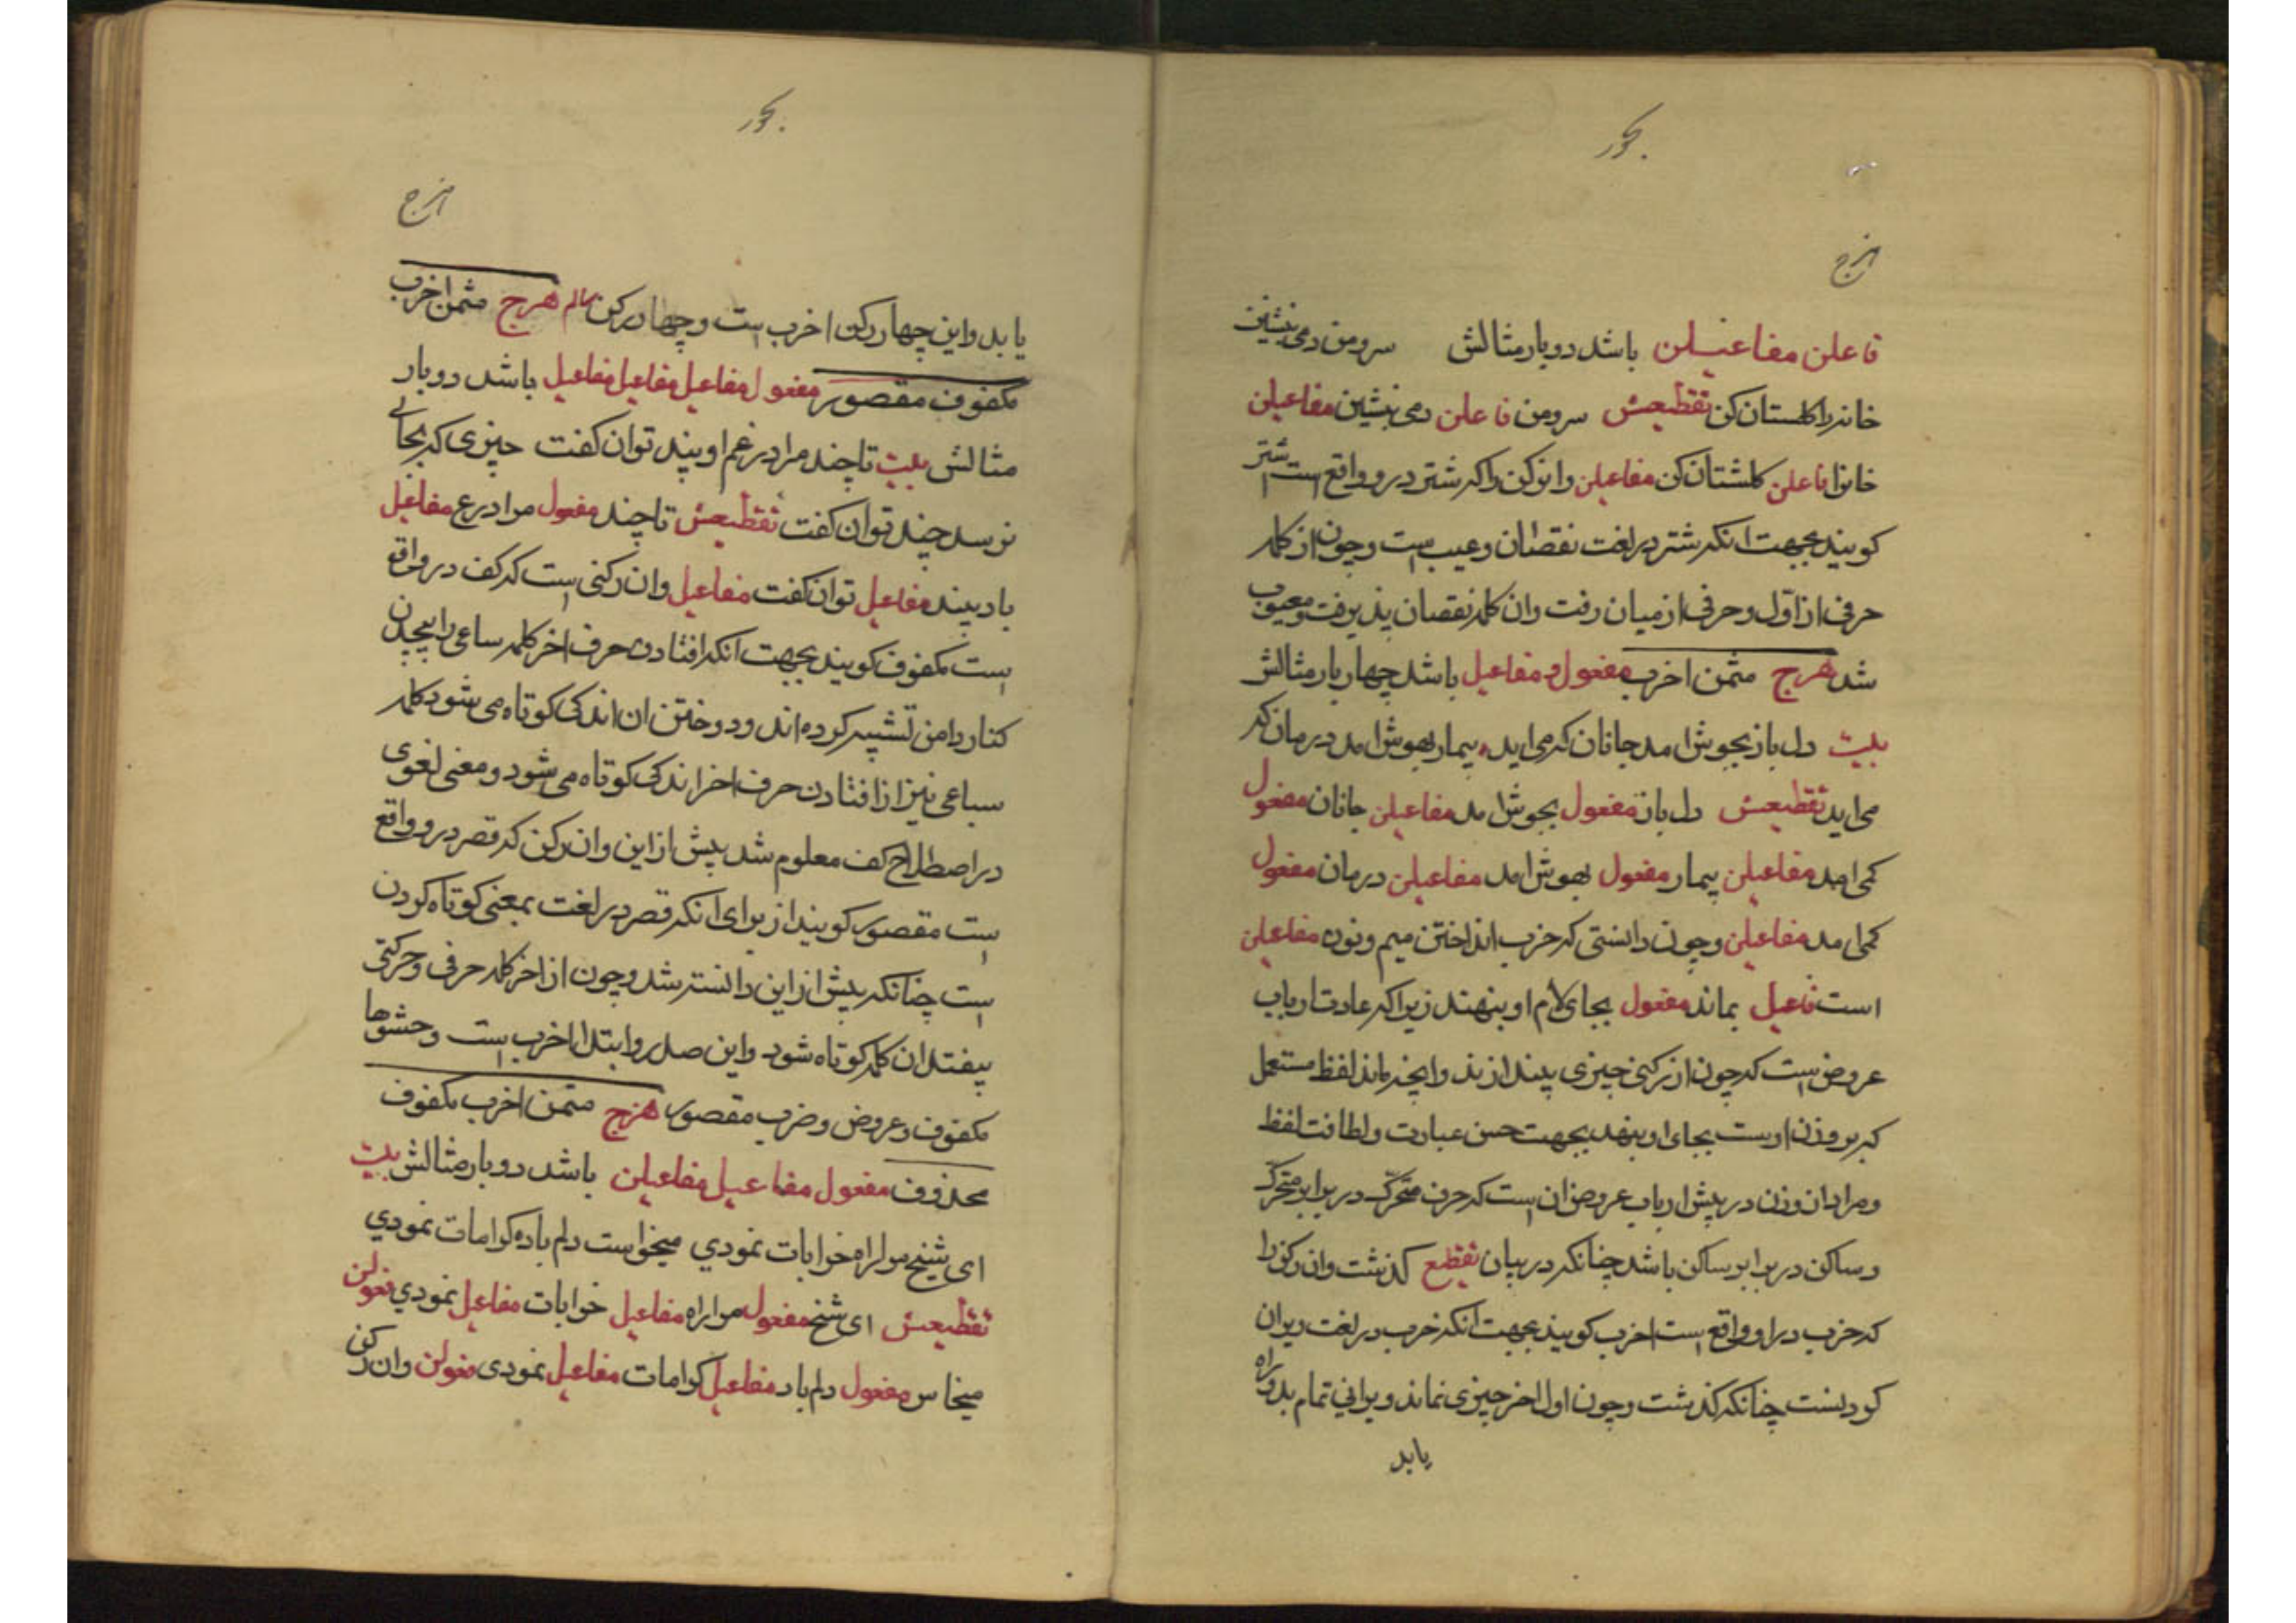 بحور
هزج
فاعلن مفاعیلن باشد دوبار مثالش سرو من دمی بنشین
خانه را گلستان کن تقطیعش سرو من فاعلن دمی بنشین مفاعیلن
خانرا فاعلن گلستان کن مفاعیلن و این رکن را که شتر درو واقع است اشتر
گویند بجهت آنکه شتر در لغت نقصان و عیب است و چون از کلمه
حرفی از اول و حرفی از میان رفت و ان کلمه نقصان پذیرفت و معیوب
شد هزج مثمن اخرب مفعول و مفاعیل باشد چهار بار مثالش
بیت دل باز بجوش امد جانان که می اید بیمار بهوش امد درمان که
می اید تقطیعش دل باز مفعول بجوش امد مفاعیلن جانان مفعول
کمی امد مفاعیلن بیمار مفعول بهوش امد مفاعیلن درمان مفعول
کمی امد مفاعیلن و چون دانستی که خرب انداختن میم و نون مفاعیلن
است فاعیل بماند مفعول بجای لام او بنهند زیرا که عادت ارباب
عروض است که چون از رکنی چیزی بیندازند و آنچه بماند لفظ مستعمل
که بر وزن اوست بجای او بنهند بجهت حسن عبارت و لطافت لفظ
و مراد ان وزن در پیش ارباب عروض ان است که حرف متحرک در برابر متحرک
و ساکن در برابر ساکن باشد چنانکه در بیان تقطیع گذشت و ان رکن را
که خرب در او واقع است اخرب گویند بجهت آنکه خرب در لغت ویران
کردنست چنانکه گذشت و چون اول اخر چیزی نماند ویرانی تمام بدو راه
یابد
بحور
هزج
یابد و این چهار رکن اخرب است و چهار رکن سالم هزج مثمن اخرب
مکفوف مقصور مفعول مفاعیل مفاعیل مفاعیل باشد دوبار
مثالش بیت تا چند مرا در غم او پند توان گفت چیزی که بجائی
نرسد چند توان گفت تقطیعش تا چند مفعول مرا در غ مفاعیل
باد بیند مفاعیل توان گفت مفاعیل و ان رکنی است که کف در واقع
است مکفوف گویند بجهت آنکه افتادن حرف اخر کلمه سباعی را بپچیدن
کنار دامن تشبیه کرده اند و دوختن ان اندکی کوتاه می شود کلمه
سباعی نیز از افتادن حرف اخر اندکی کوتاه می شود و معنی لغوی
در اصطلاح کف معلوم شد پیش از این و ان رکن که قصر درو واقع
است مقصور گویند از برای آنکه قصر در لغت بمعنی کوتاه کردن
است چنانکه پیش از این دانسته شد و چون از اخر کلمه حرفی و حرکتی
بیفتد ان کلمه کوتاه شود و این صدر و ابتدا اخرب است و حشوها
مکفوف و عروض و ضرب مقصور هزج مثمن اخرب مکفوف
محذوف مفعول مفاعیل مفاعیلن باشد دوبار مثالش بیت
ای شیخ مرا راه خرابات نمودی میخواست دلم باده کرامات نمودی
تقطیعش ای شیخ مفعول مرا راه مفاعیل خرابات مفاعیل نمودی فعولن
میخاس مفعول دلم باد مفاعیل کرامات مفاعیل نمودی فعولن و ان رکن